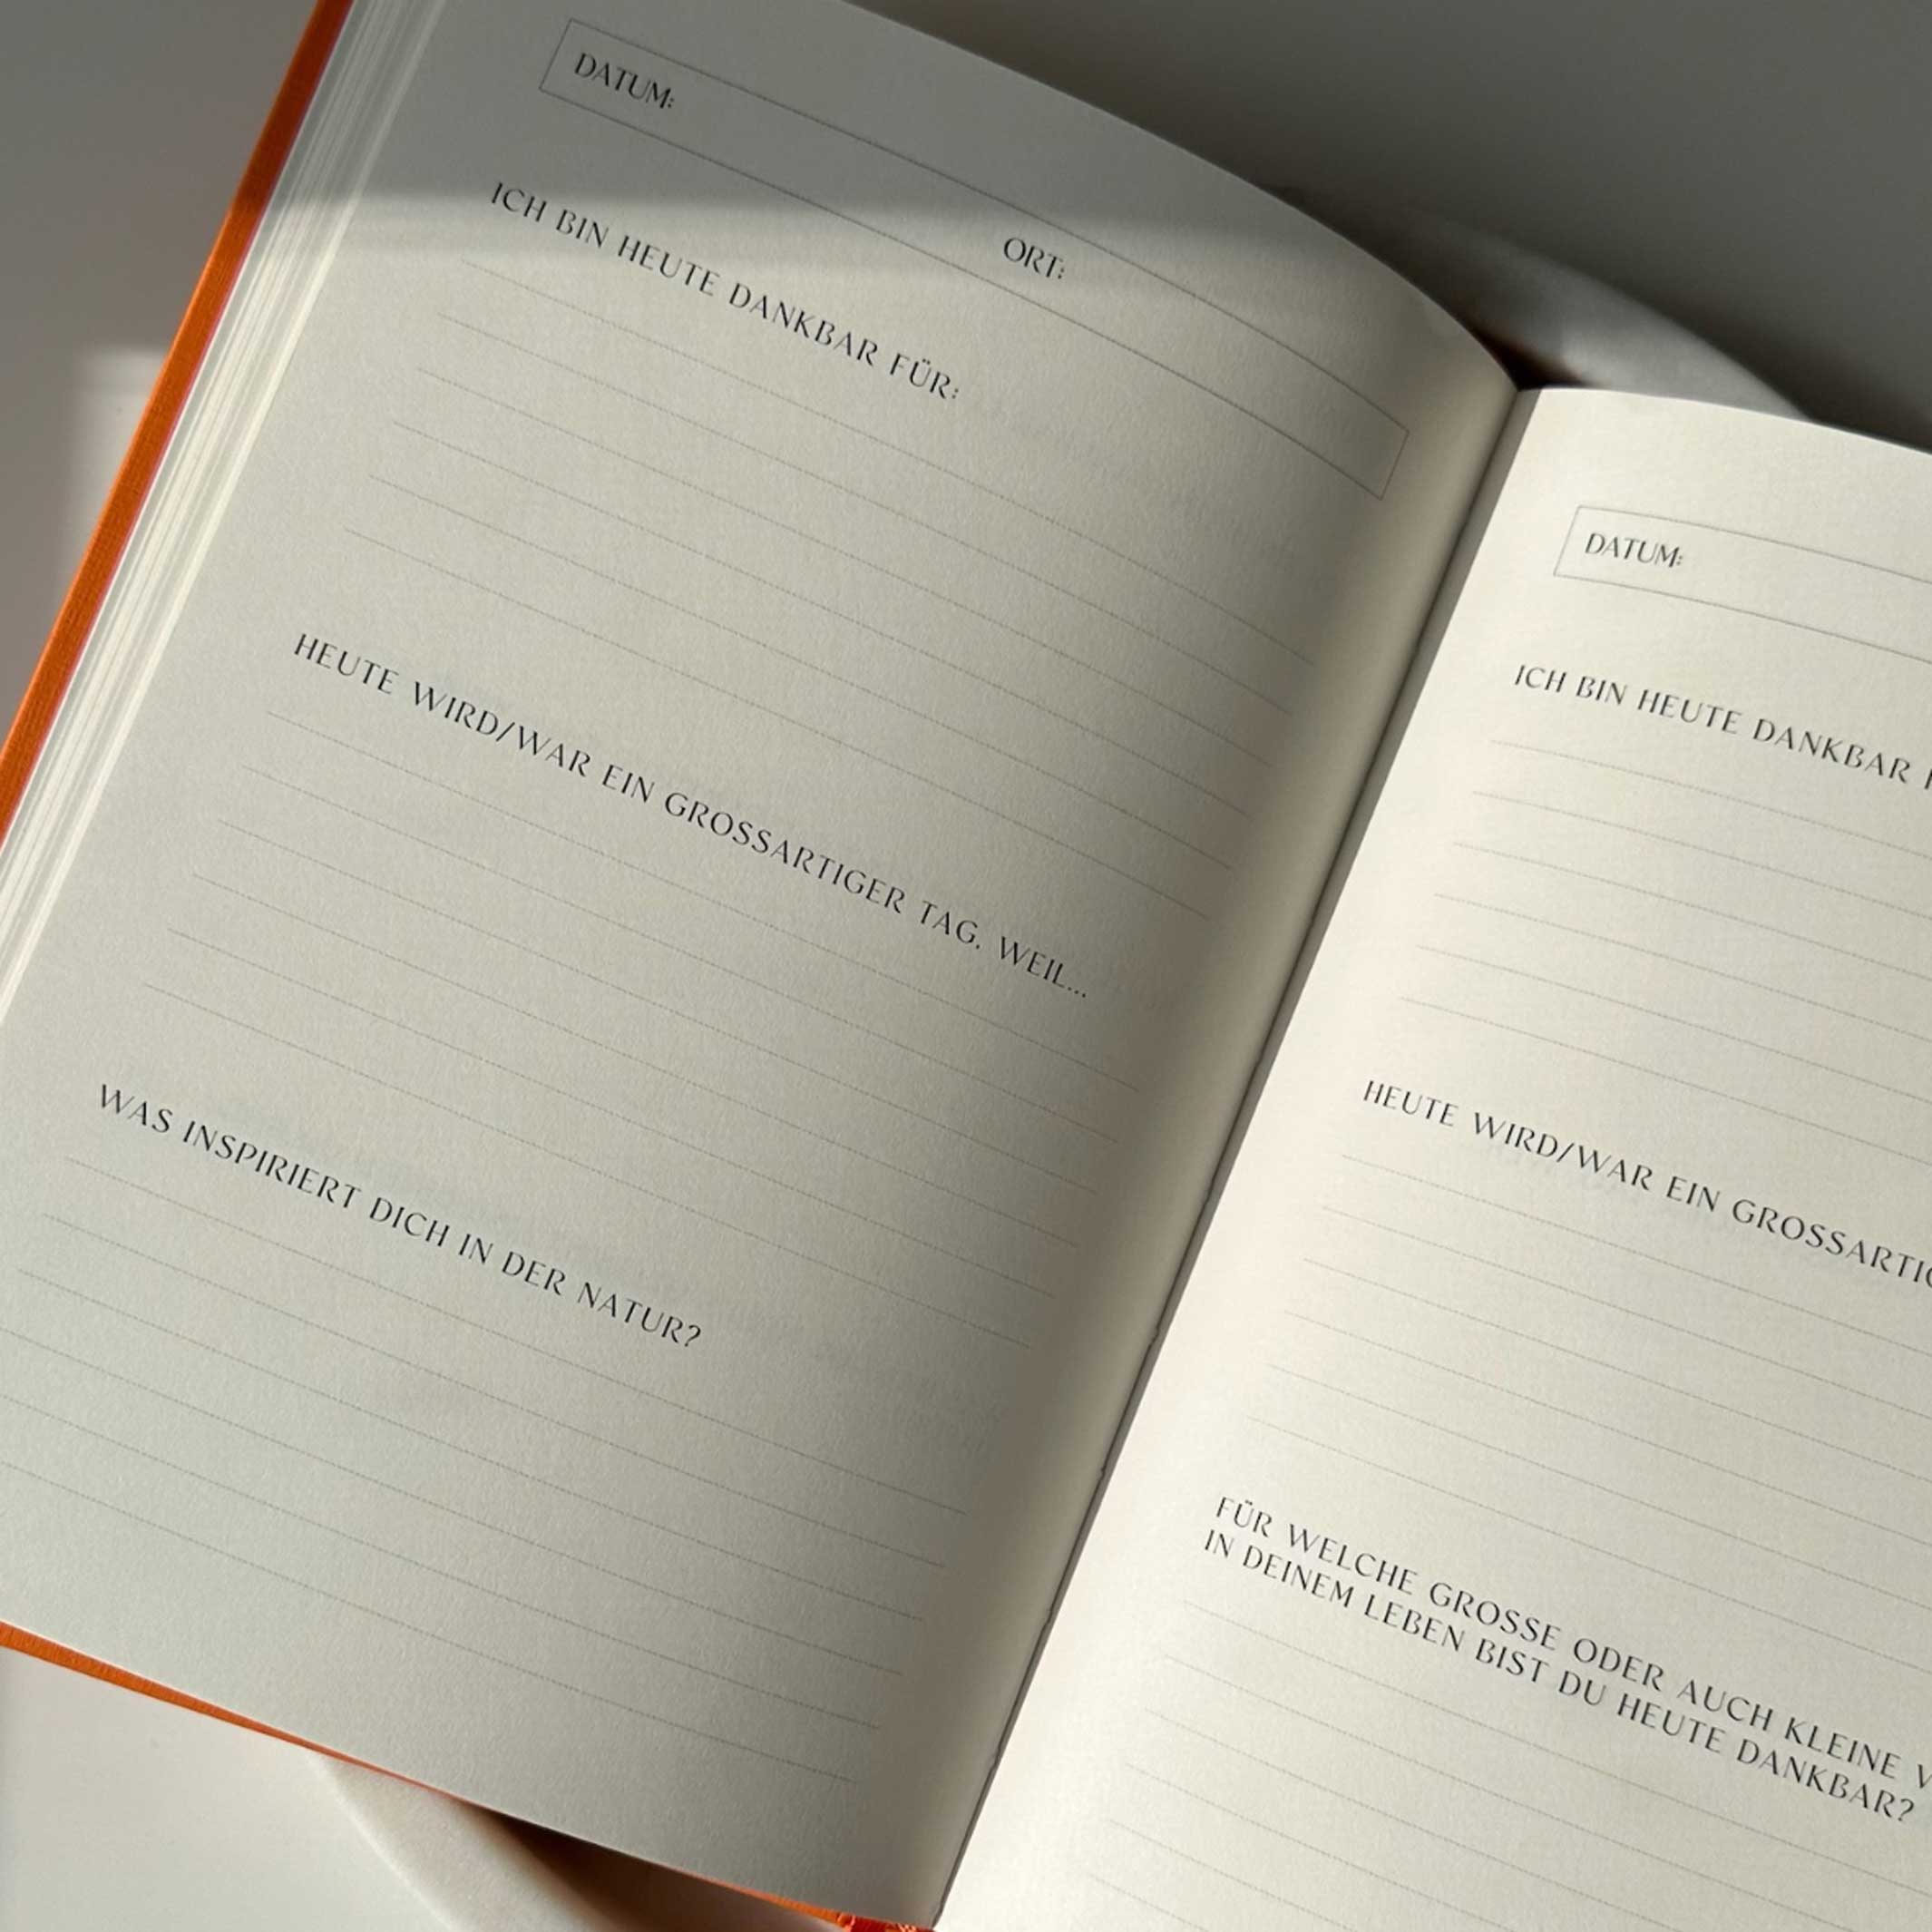 DATUM:
ORT:
ICH BIN HEUTE DANKBAR FÜR:
HEUTE WIRD/WAR EIN GROSSARTIGER TAG, WEIL...
WAS INSPIRIERT DICH IN DER NATUR?
DATUM:
ICH BIN HEUTE DANKBAR
HEUTE WIRD/WAR EIN
FÜR WELCHE GROSSE ODER AUCH KLEINE
IN DEINEM LEBEN BIST DU HEUTE DANKBAR?